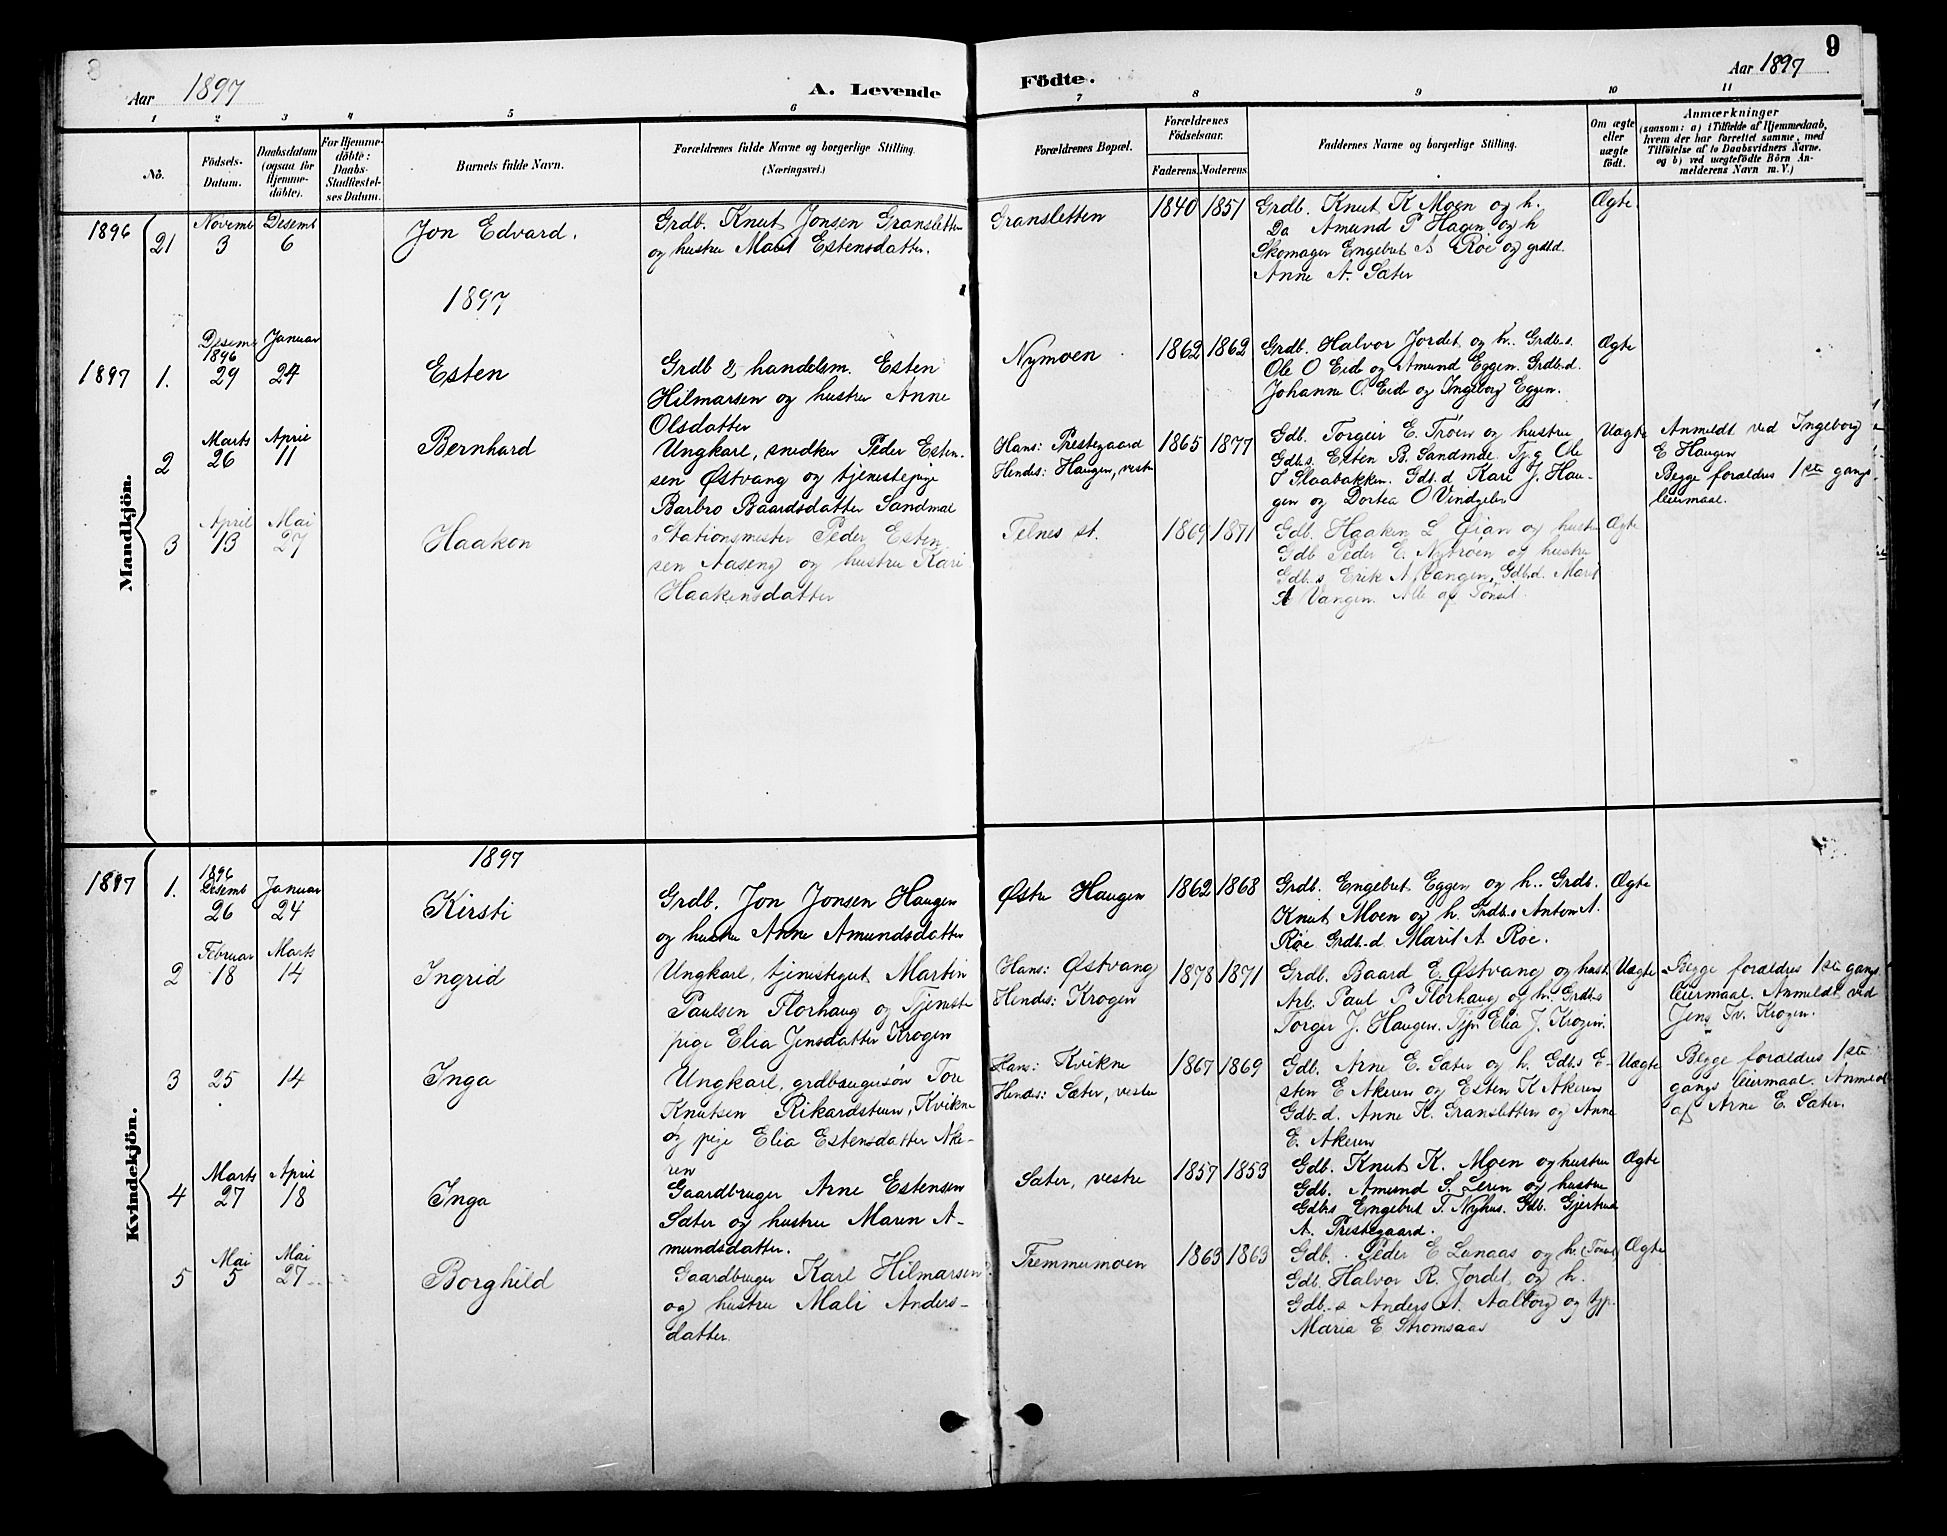 Aar 1897 A. Levende Födte. Aar 1897 9
1 2 3 4 5 6 7 8 9 10 11
No.
Födsels-Datum.
Daabsdatum (ogsaa for Hjemme-döbte).
For Hjemme-döbte: Daabs-Stadfæstel-ses Datum.
Barnets fulde Navn.
Forældrenes fulde Navne og borgerlige Stilling. (Næringsvei.)
Forældrenes Bopæl.
Forældrenes Födselsaar.
Faderens. Moderens
Faddernes Navne og borgerlige Stilling.
Om ægte eller uægte födt.
Anmærkninger
(saasom: a) i Tilfælde af Hjemmedaab,
hvem der har forrettet samme, med
Tilföielse af to Daabsvidners Navne.
og b) ved uægtefödte Börn An-
melderens Navn m.V.)
Mandkjön.
1896 21 Novemb 3 Desemb 6 Jon Edvard.
Grdb. Knut Jonsen Gransletten
og hustru Marit Estensdatter.
Gransletten 1840 1851
Grdb. Knut K Moen og h.
Do Amund P Hagen og h
Skomager Engebret A Røe og grdbd.
Anne A. Sæter
Ægte
1897
1897 1. Desemb 1896 29 Januar 24 Esten
Grdb & handelsm. Esten
Hilmarsen og hustru Anne
Olsdatter
Nymoen 1862 1862
Grdb. Halvor Jordet og h. Grdb.s.
Ole O Eid og Amund Eggen. Grdb.d.
Johanne O. Eid og Ingeborg Eggen.
Ægte
2 Marts 26 April 11 Bernhard
Ungkarl, snedker Peder Esten-
sen Østvang og tjenestepige
Barbro Baardsdatter Sandmæl
Hans: Prestegaard
Hendes: Haugen, vestre
1865 1877
Gdb. Torgeir E. Trøen og hustru
Gdb.s. Esten B. Sandmæl. Tj.g Ole
I Slaabakken. Gdb.d Kari J. Hau-
gen og Dortea O Vindgelen
Uægte
Anmeldt ved Ingeborg
E Haugen
Begge forældres 1ste gangs
leiermaal.
3 April 13 Mai 27 Haakon
Stationsmester Peder Esten
sen Aaseng og hustru Kari
Haakensdatter
Telnes st. 1869 1871
Gdb. Haaken L Øian og hustru
Gdb Peder E. Nytrøen og hustru
Gdb.s. Erik A Vangen, Gdb.d. Marit
A Vangen. Alle af Tönset.
Ægte
Kvindekjön.
1897
1897 1. 1896 Desemb 26 Januar 24 Kirsti
Grdb. Jon Jonsen Haugen
og hustru Anne Amundsdatter
Østre Haugen 1862 1868
Grdb. Engebret Eggen og h. Grdb.
Knut Moen og h. Grdb.s Anton A.
Røe Grdb.d Marit A. Røe.
Ægte
2 Februar 18 Marts 14 Ingrid
Ungkarl, tjenestegut Martin
Paulsen Florhaug og Tjeneste
pige Elia Jensdatter Krogen
Hans: Østvang
Hendes: Krogen
1878 1871
Grdb. Baard E. Østvang og hust.
Arb. Paul P Florhaug og h. Grdb.s
Torger J. Haugen. Tjp. Elia J. Krogen.
Uægte
Begge forældres 1ste gangs
leiermaal. Anmeldt ved
Jens Krogen.
3 25 14 Inga
Ungkarl, grdbrugersøn Tore
Knutsen Rikardstuen, Kvikne
og pige Elia Estensdatter Ake-
ren
Hans: Kvikne
Hendes: Sæter, vestre
1867 1869
Gdb. Arne E. Sæter og h. Gdb.s E-
sten E Akeren og Esten K Akeren
Gdb.d. Anne K. Gransletten og Anne
E. Akeren
Uægte
Begge forældres 1ste
gangs leiermaal. Anmeldt
af Arne E. Sæter.
4 Marts 27 April 18 Inga
Gaardbruger Arne Estensen
Sæter og hustru Maren A-
mundsdatter.
Sæter, vestre 1857 1853
Gdb. Knut K. Moen og hustru
Gdb. Amund S. Leren og hustru
Gdbs Engebret T. Nyhus. Gdb. Gjertrud
A. Prestegaard.
Ægte
5 Mai 5 Mai 27 Borghild
Gaardbruger Karl Hilmarsen
og hustru Mali Anders-
datter.
Fremmumoen 1863 1863
Gdb. Peder E Lunaas og h.
Gdb. Halvor R. Jordet, og h.
Gdb.s Anders A. Aalborg og tjp.
Maria E. Strömsaas
Ægte